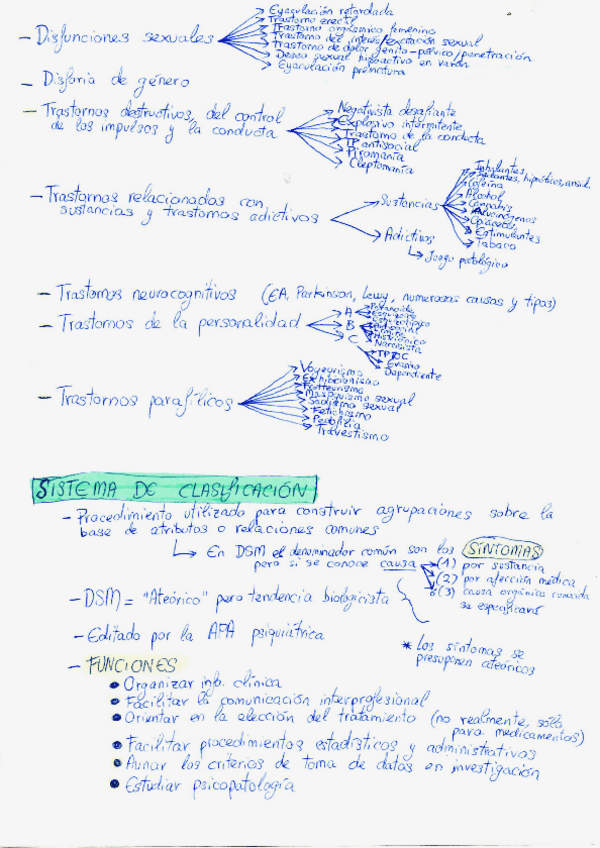 Eyaculación retardada
Trastorno erectil
Trastorno orgásmico femenino
- Disfunciones sexuales
Trastorno del interés/excitación sexual
Trastorno de dolor génito-pélvico/penetración
Deseo sexual hipoactivo en varón
Eyaculación prematura
- Disforia de género
- Trastornos destructivos, del control
de los impulsos y la conducta
Negativista desafiante
Explosivo intermitente
Trastorno de la conducta
TP antisocial
Piromanía
Cleptomanía
- Trastornos relacionados con
sustancias y trastornos adictivos
Sustancias
Inhalantes
Sedantes, hipnóticos, ansiol.
Cafeína
Alcohol
Cannabis
Alucinógenos
Opiáceos
Estimulantes
Tabaco
Adictivos
Juego patológico
- Trastornos neurocognitivos (EA, Parkinson, Lewy, numerosas causas y tipos)
- Trastornos de la personalidad
A
Paranoide
Esquizoide
Esquizotípico
B
Antisocial
Límite
Histriónico
Narcisista
C
TPOC
Evitativo
Dependiente
- Trastornos parafílicos
Voyeurismo
Exhibicionismo
Frotteurismo
Masoquismo sexual
Sadismo sexual
Fetichismo
Pedofilia
Travestismo
SISTEMA DE CLASIFICACIÓN
- Procedimiento utilizado para construir agrupaciones sobre la
base de atributos o relaciones comunes
En DSM el denominador común son los SÍNTOMAS
pero si se conoce causa
(1) por sustancia
(2) por afección médica
(3) causa orgánica conocida
se especificará
- DSM = "Ateórico" pero tendencia biologicista
- Editado por la APA psiquiátrica
* Los síntomas se
presuponen ateóricos
- FUNCIONES
• Organizar info. clínica
• Facilitar la comunicación interprofesional
• Orientar en la elección del tratamiento (no realmente, sólo
para medicamentos)
• Facilitar procedimientos estadísticos y administrativos
• Aunar los criterios de toma de datos en investigación
• Estudiar psicopatología